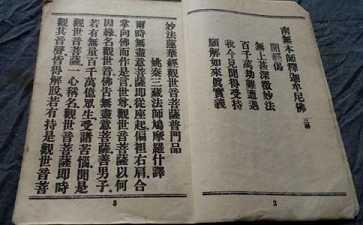 南無本師釋迦牟尼佛 三稱
開經偈
無上甚深微妙法
百千萬劫難遭遇
我今見聞得受持
願解如來眞實義
2
妙法蓮華經觀世音菩薩普門品
姚秦三藏法師鳩摩羅什譯
爾時無盡意菩薩即從座起偏袒右肩合
掌向佛而作是言世尊觀世音菩薩以何
因緣名觀世音佛告無盡意菩薩善男子
若有無量百千萬億眾生受諸苦惱聞是
觀世音菩薩一心稱名觀世音菩薩即時
觀其音聲皆得解脫若有持是觀世音菩
3